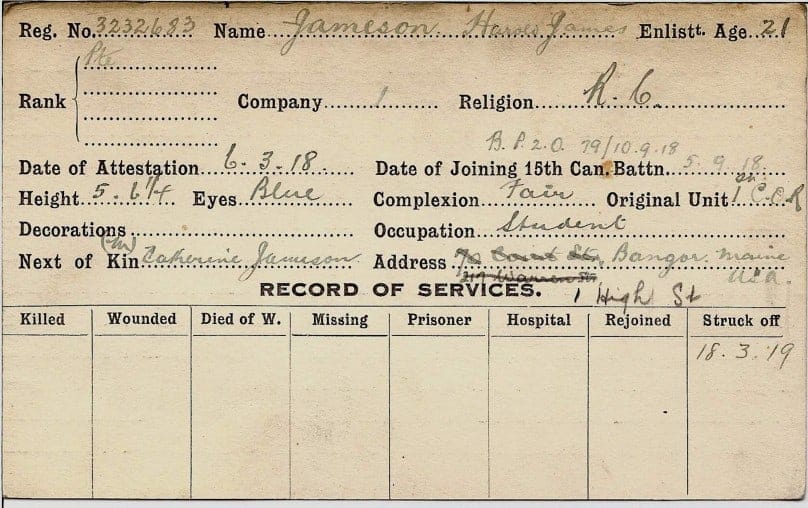 Reg. No. 3232683 Name Jameson James Enlistt. Age 21
Pte
Rank Company 1 Religion R. C.
B.P.2.O. 79/10.9.18
Date of Attestation 6.3.18 Date of Joining 15th Can. Battn. 5.9.18.
Height 5.6 1/4 Eyes Blue Complexion Fair Original Unit 1st C.O.R
Decorations Occupation Student
Next of Kin (M) Catherine Jameson Address Bangor. Maine
217 Warren St. USA.
RECORD OF SERVICES. 1 High St
Killed Wounded Died of W. Missing Prisoner Hospital Rejoined Struck off
18.3.19